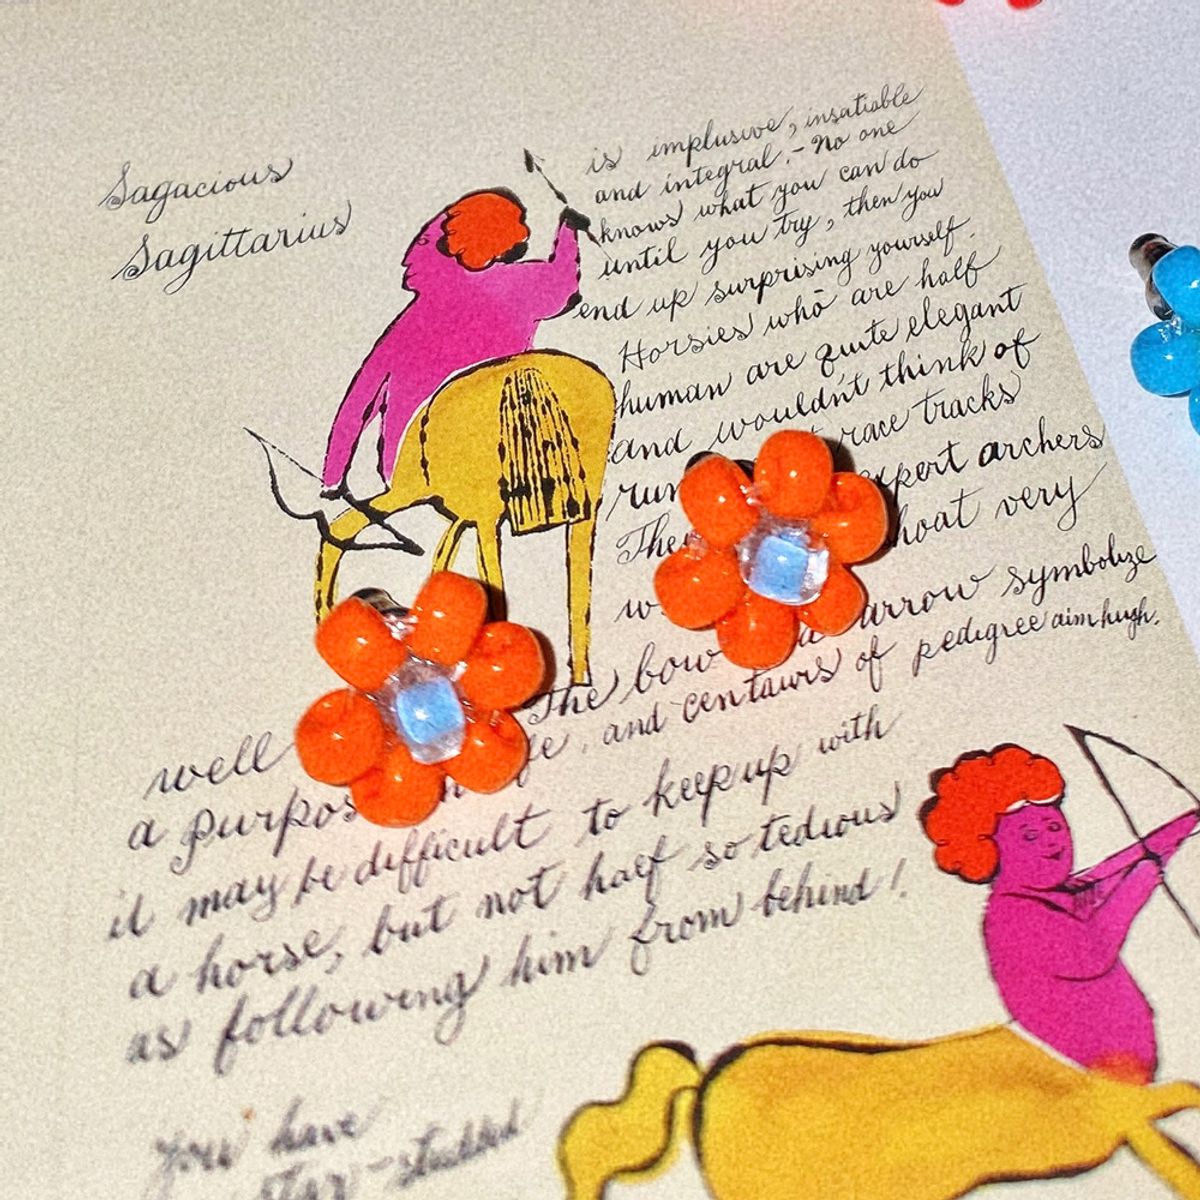 Sagacious
Sagittarius
is implusive, insatiable
and integral. - No one
knows what you can do
until you try, then you
end up surprising yourself.
Horsies who are half
human are quite elegant
and wouldn't think of
race tracks
expert archers
very
well The bow arrow symbolize
a fe, and centaurs of pedigree aim high.
it may be difficult to keep up with
a horse, but not half so tedious
as following him from behind!
you have
star-studded